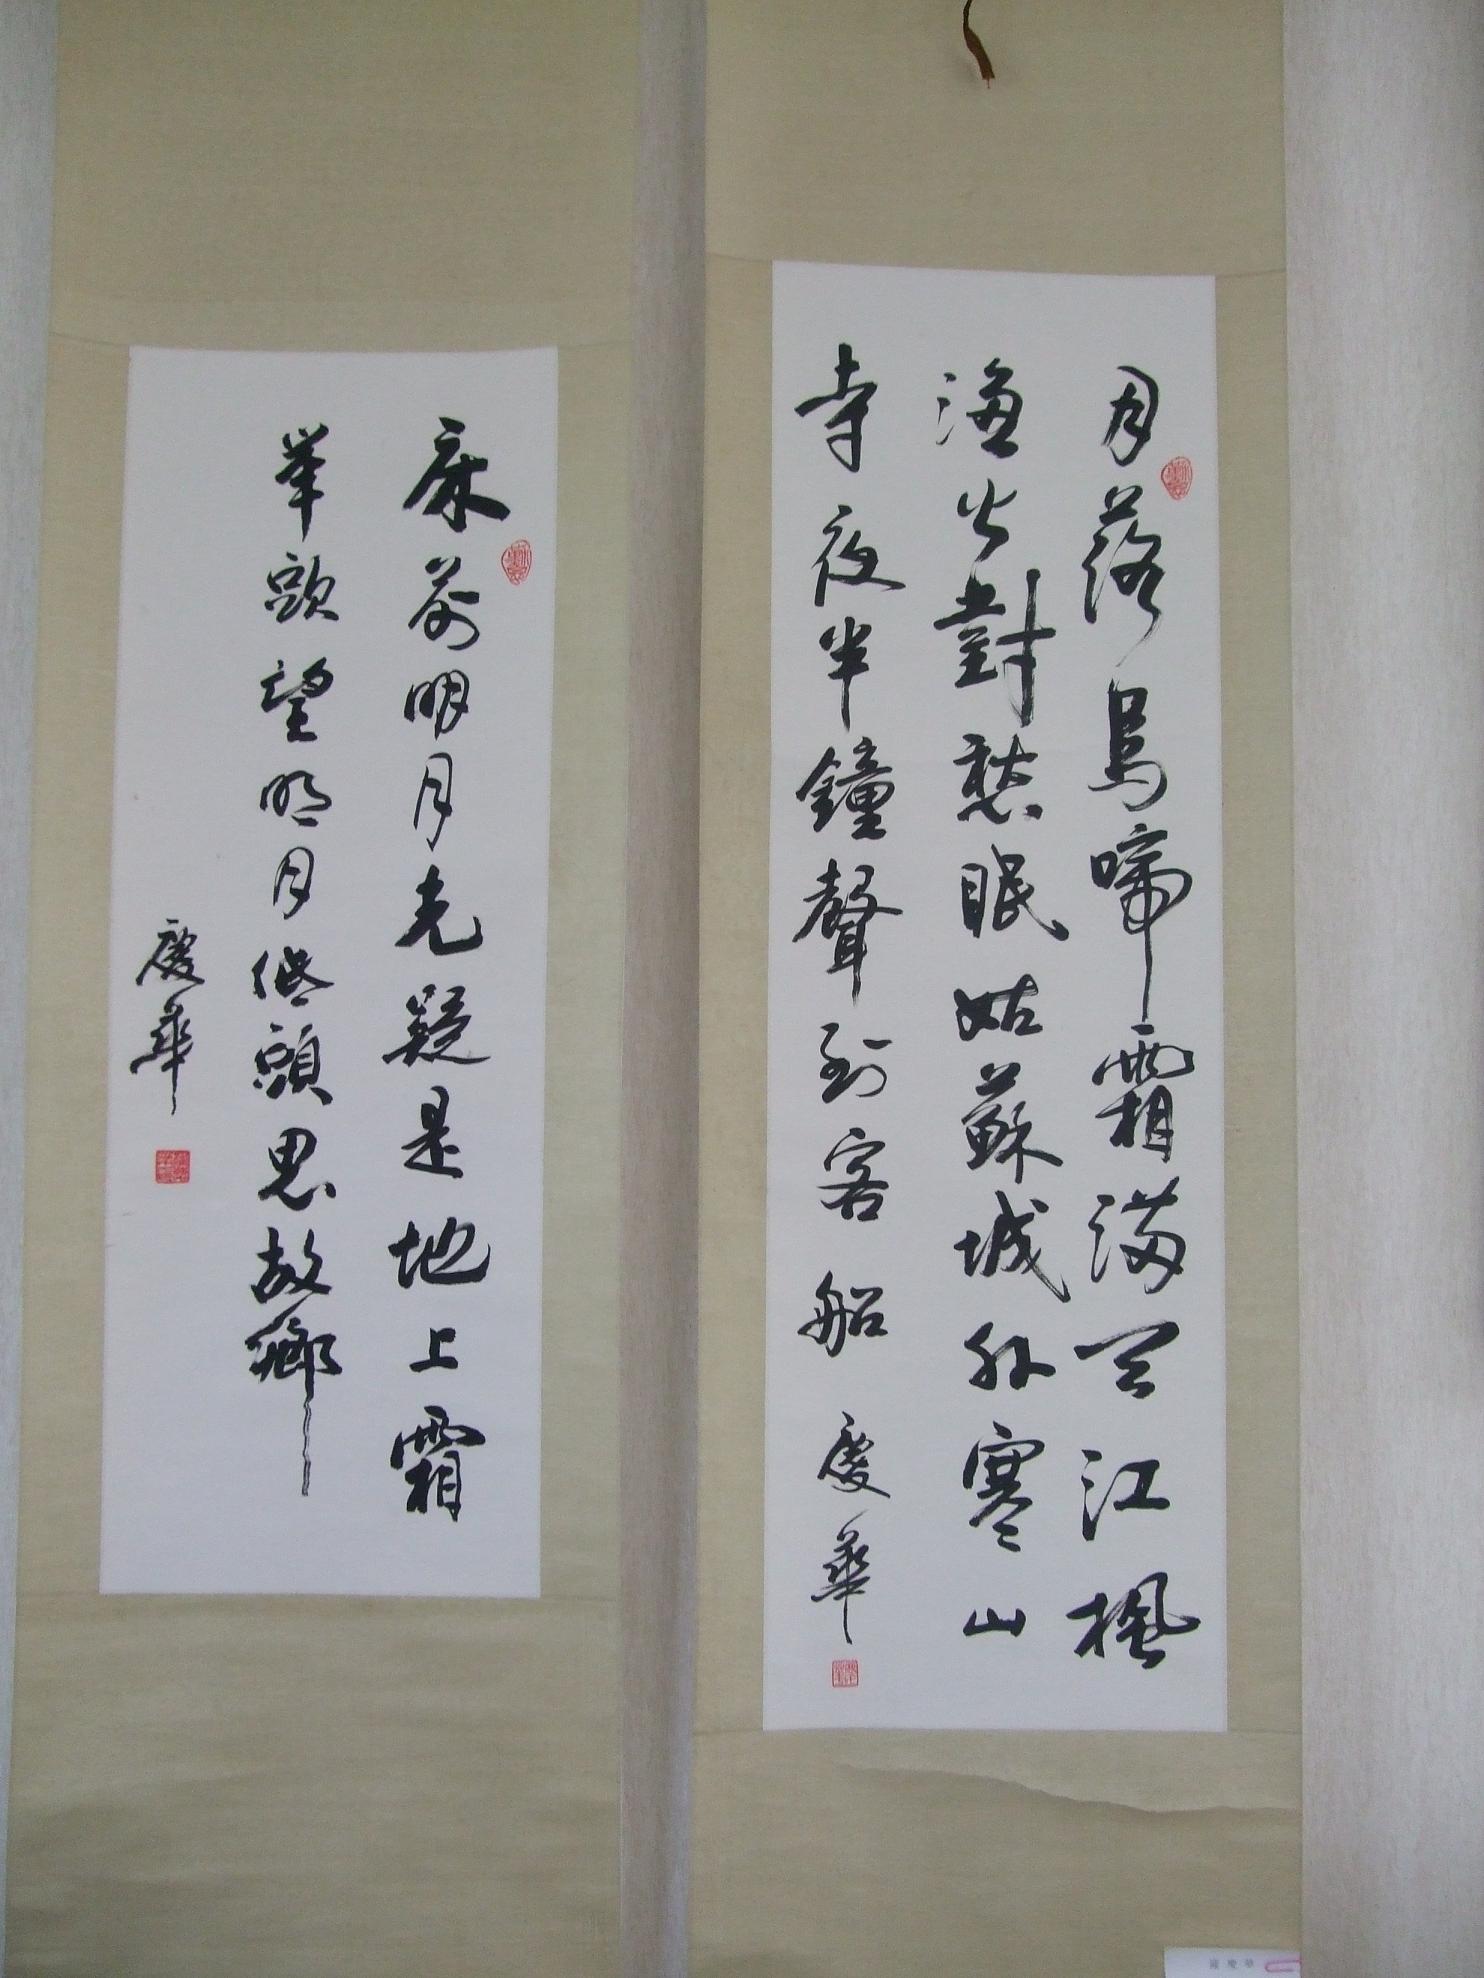 月落烏啼霜滿天江楓
漁火對愁眠姑蘇城外寒山
寺夜半鐘聲到客船 慶華
床前明月光疑是地上霜
舉頭望明月低頭思故鄉
慶華